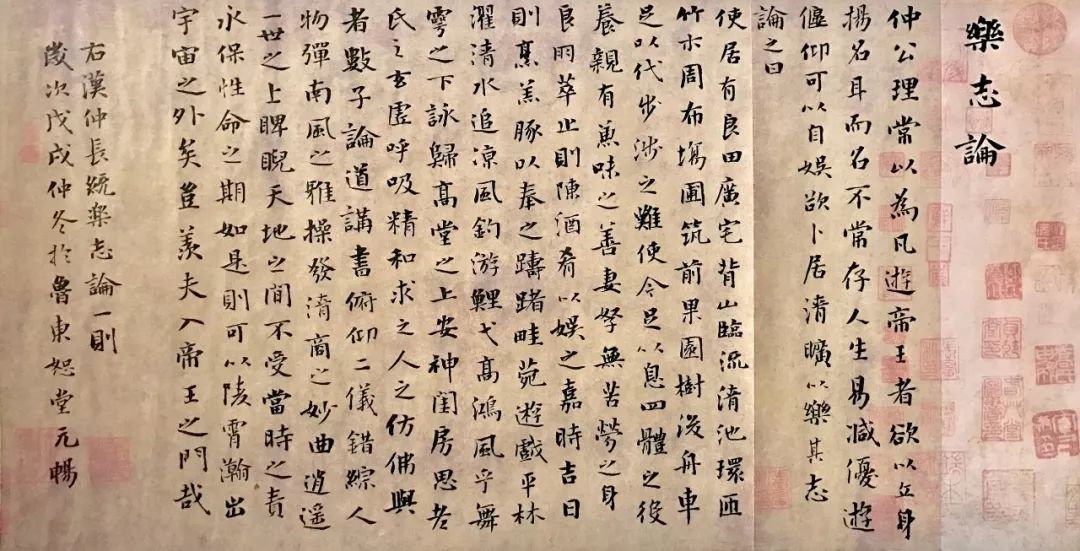 樂志論
仲公理常以為凡遊帝王者欲以立身
揚名耳而名不常存人生易减優遊
偃仰可以自娛欲卜居清曠以樂其志
論之曰
使居有良田廣宅背山臨流清池環匝
竹木周布塲圃筑前果園樹後舟車
足以代步涉之難使令足以息四體之役
養親有兼味之善妻孥無苦勞之身
良朋萃止則陳酒肴以娛之嘉時吉日
則烹羔豚以奉之躊躇畦苑遊戲平林
濯清水追涼風釣游鯉弋高鴻風乎舞
雩之下詠歸高堂之上安神閨房思老
氏之玄虛呼吸精和求之人之仿佛與
者數子論道講書俯仰二儀錯綜人
物彈南風之雅操發清商之妙曲逍遥
一世之上睥睨天地之間不受當時之責
永保性命之期如是則可以陵霄瀚出
宇宙之外矣豈羨夫入帝王之門哉
右漢仲長統樂志論一則
歲次戊戌仲冬於魯東恕堂元暢